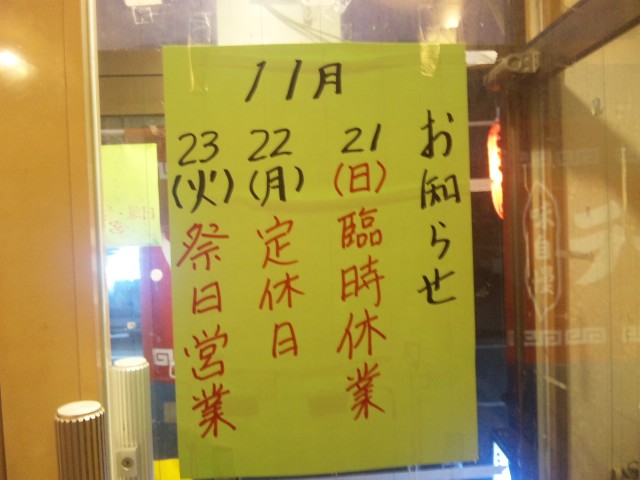 11月
お知らせ
21(日)臨時休業
22(月)定休日
23(火)祭日営業